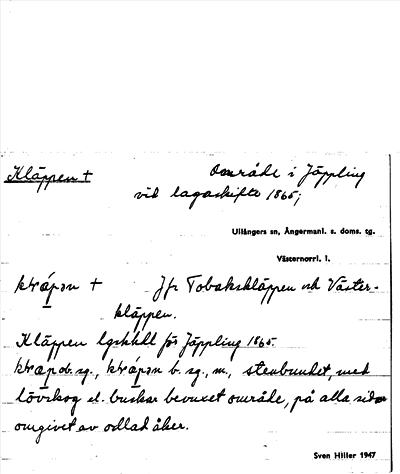 Kläppen +
Område i Jäppling
vid lagaskifte 1865;
Ullångers sn, Ångermanl. s. doms. tg.
Västernorrl. l.
Jfr Tobakskläppen och Väster-
kläppen.
Kläppen lgskhdl för Jäppling 1865.
ob. sg., b. sg., m., stenbundet, med
lövskog el. buskar bevuxet område, på alla sidor
omgivet av odlad åker.
Sven Hiller 1947